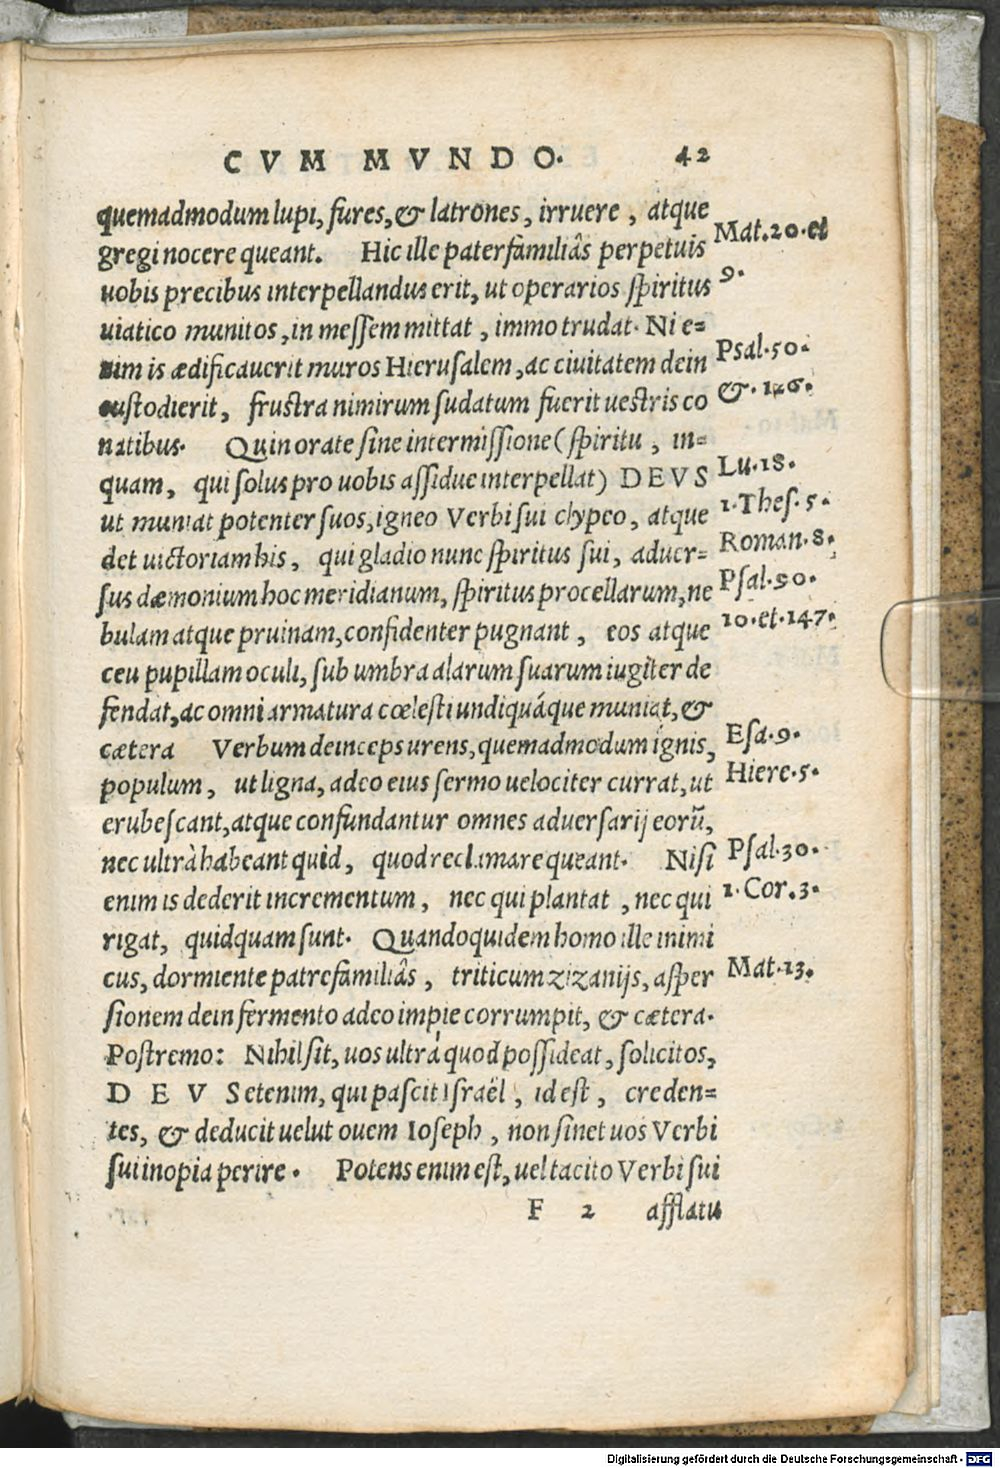 CVM MVNDO. 42
quemadmodum lupi, fures, & latrones, irruere, atque
gregi nocere queant. Hic ille paterfamiliâs perpetuis
uobis precibus interpellandus erit, ut operarios spiritus
uiatico munitos, in messem mittat, immo trudat. Ni e=
nim is ædificauerit muros Hierusalem, ac ciuitatem dein
custodierit, frustra nimirum sudatum fuerit uestris co
natibus. Quin orate sine intermissione (spiritu, in=
quam, qui solus pro uobis assidue interpellat) DEVS
ut muniat potenter suos, igneo Verbi sui clypeo, atque
det uictoriam his, qui gladio nunc spiritus sui, aduer=
sus dæmonium hoc meridianum, spiritus procellarum, ne
bulam atque pruinam, confidenter pugnant, eos atque
ceu pupillam oculi, sub umbra alarum suarum iugiter de
fendat, ac omni armatura cœlesti undiquáque muniat, &
cætera Verbum deinceps urens, quemadmodum ignis,
populum, ut ligna, adeo eius sermo uelociter currat, ut
erubescant, atque confundantur omnes aduersarij eorũ,
nec ultrà habeant quid, quod reclamare queant. Nisi
enim is dederit incrementum, nec qui plantat, nec qui
rigat, quidquam sunt. Quandoquidem homo ille inimi
cus, dormiente patrefamiliâs, triticum zizanijs, asper
sionem dein fermento adeo impie corrumpit, & cætera.
Postremo: Nihil sit, uos ultrà quod possideat, solicitos,
DEVS etenim, qui pascit Israël, id est, creden=
tes, & deducit uelut ouem Ioseph, non sinet uos Verbi
sui inopia perire. Potens enim est, uel tacito Verbi sui
F 2 afflatu
Mat.20.et
9.
Psal.50.
&.126.
Lu.18.
1.Thes.5.
Roman.8.
Psal.90.
10.et.147.
Esa.9.
Hiere.5.
Psal.30.
1.Cor.3.
Mat.13.
Digitalisierung gefördert durch die Deutsche Forschungsgemeinschaft - DFG